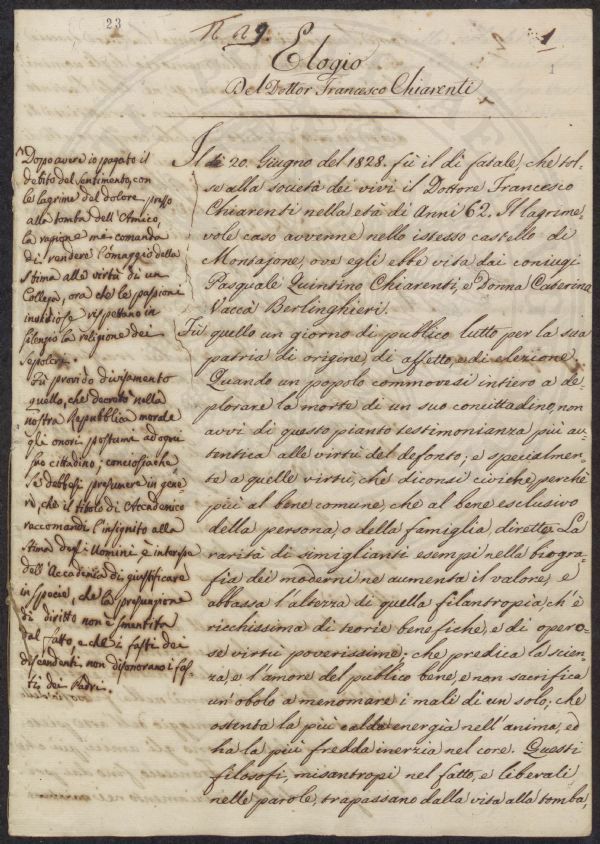 23
N. 29.
1
1
Elogio
Del Dottor Francesco Chiarenti
Il dì 20. Giugno del 1828. fù il dì fatale, che tol-
se alla società dei vivi il Dottore Francesco
Chiarenti nella età di Anni 62. Il lagrime-
vole caso avvenne nello istesso castello di
Montajone, ove egli ebbe vita dai coniugi
Pasquale Quintino Chiarenti, e Donna Caterina
Vaccà Berlinghieri.
Fù quello un giorno di publico lutto per la sua
patria di origine, di affetto, e di elezione.
Quando un popolo commovesi intiero a de-
plorare la morte di un suo concittadino, non
avvi di questo pianto testimonianza più au-
tentica alle virtù del defonto; e specialmen-
te a quelle virtù, che diconsi civiche, perchè
più al bene comune, che al bene esclusivo
della persona, o della famiglia, dirette. La
rarità di simiglianti esempi nella biogra-
fia dei moderni ne aumenta il valore, e
abbassa l'altezza di quella filantropia, ch'è
ricchissima di teorie benefiche, e di opero-
se virtù poverissima: che predica la scien-
za, e l'amore del publico bene, e non sacrifica
un'obolo a menomare i mali di un solo; che
ostenta la più calda energia nell'anima, ed
ha la più fredda inerzia nel core. Questi
filosofi, misantropi nel fatto, e liberali
nelle parole, trapassano dalla vita alla tomba,
Dopo avere io pagato il
debito del sentimento, con
le lagrime del dolore, presso
alla tomba dell'Amico,
la ragione mi comanda
di rendere l'omaggio della
stima alle virtù di un
Collega, ora che le passioni
insidiose rispettano in
silenzio la religione dei
sepolcri.
Fù provido divisamento
quello, che decretò nella
nostra Repubblica morale
gli onori postumi ad ogni
suo cittadino; conciosiachè
se debbesi presumere in gene-
re, che il titolo di Accademico
raccomandi l'insignito alla
stima degli Uomini, è interesse
dell'Accademia di giustificare
in specie, che la presunzione
di diritto non è smentita
dal fatto, e che i fasti dei
discendenti, non disonorano i fas-
ti dei Padri.